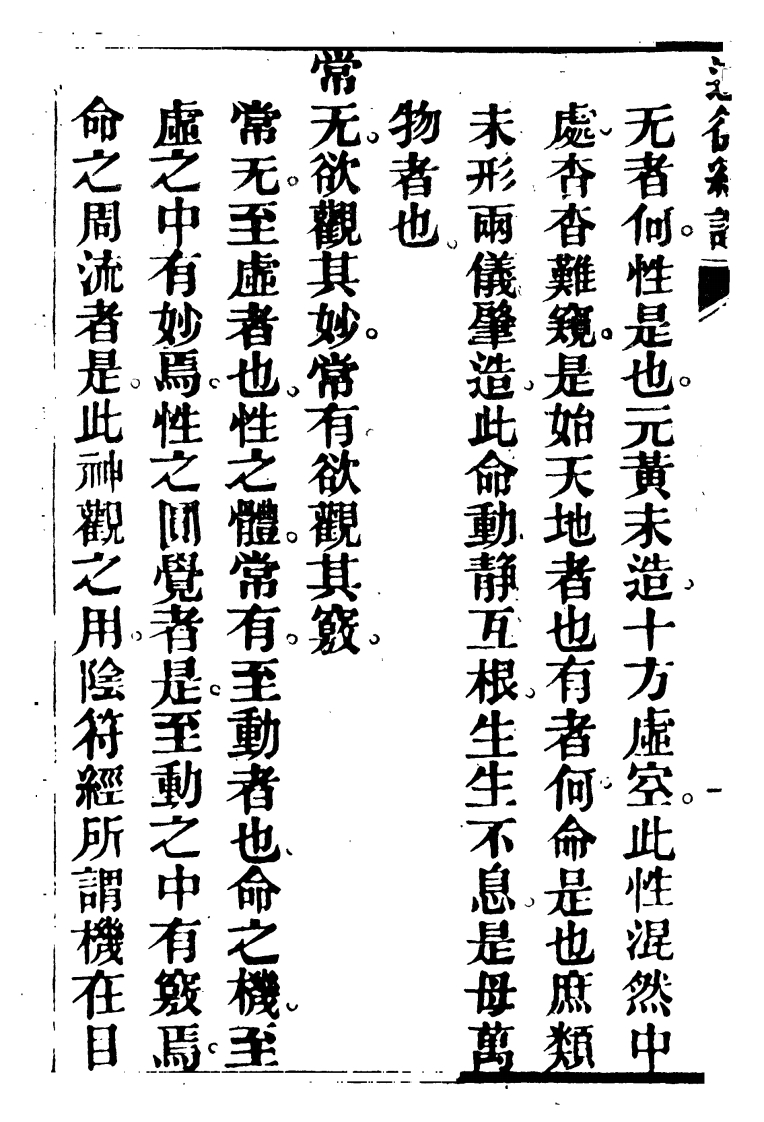 无者何性是也元黃未造十方虛空此性混然中
處杳杳難窺是始天地者也有者何命是也庶類
未形兩儀肇造此命動靜互根生生不息是母萬
物者也
常无欲觀其妙常有欲觀其竅
常无至虛者也性之體常有至動者也命之機至
虛之中有妙焉性之圓覺者是至動之中有竅焉
命之周流者是此神觀之用陰符經所謂機在目